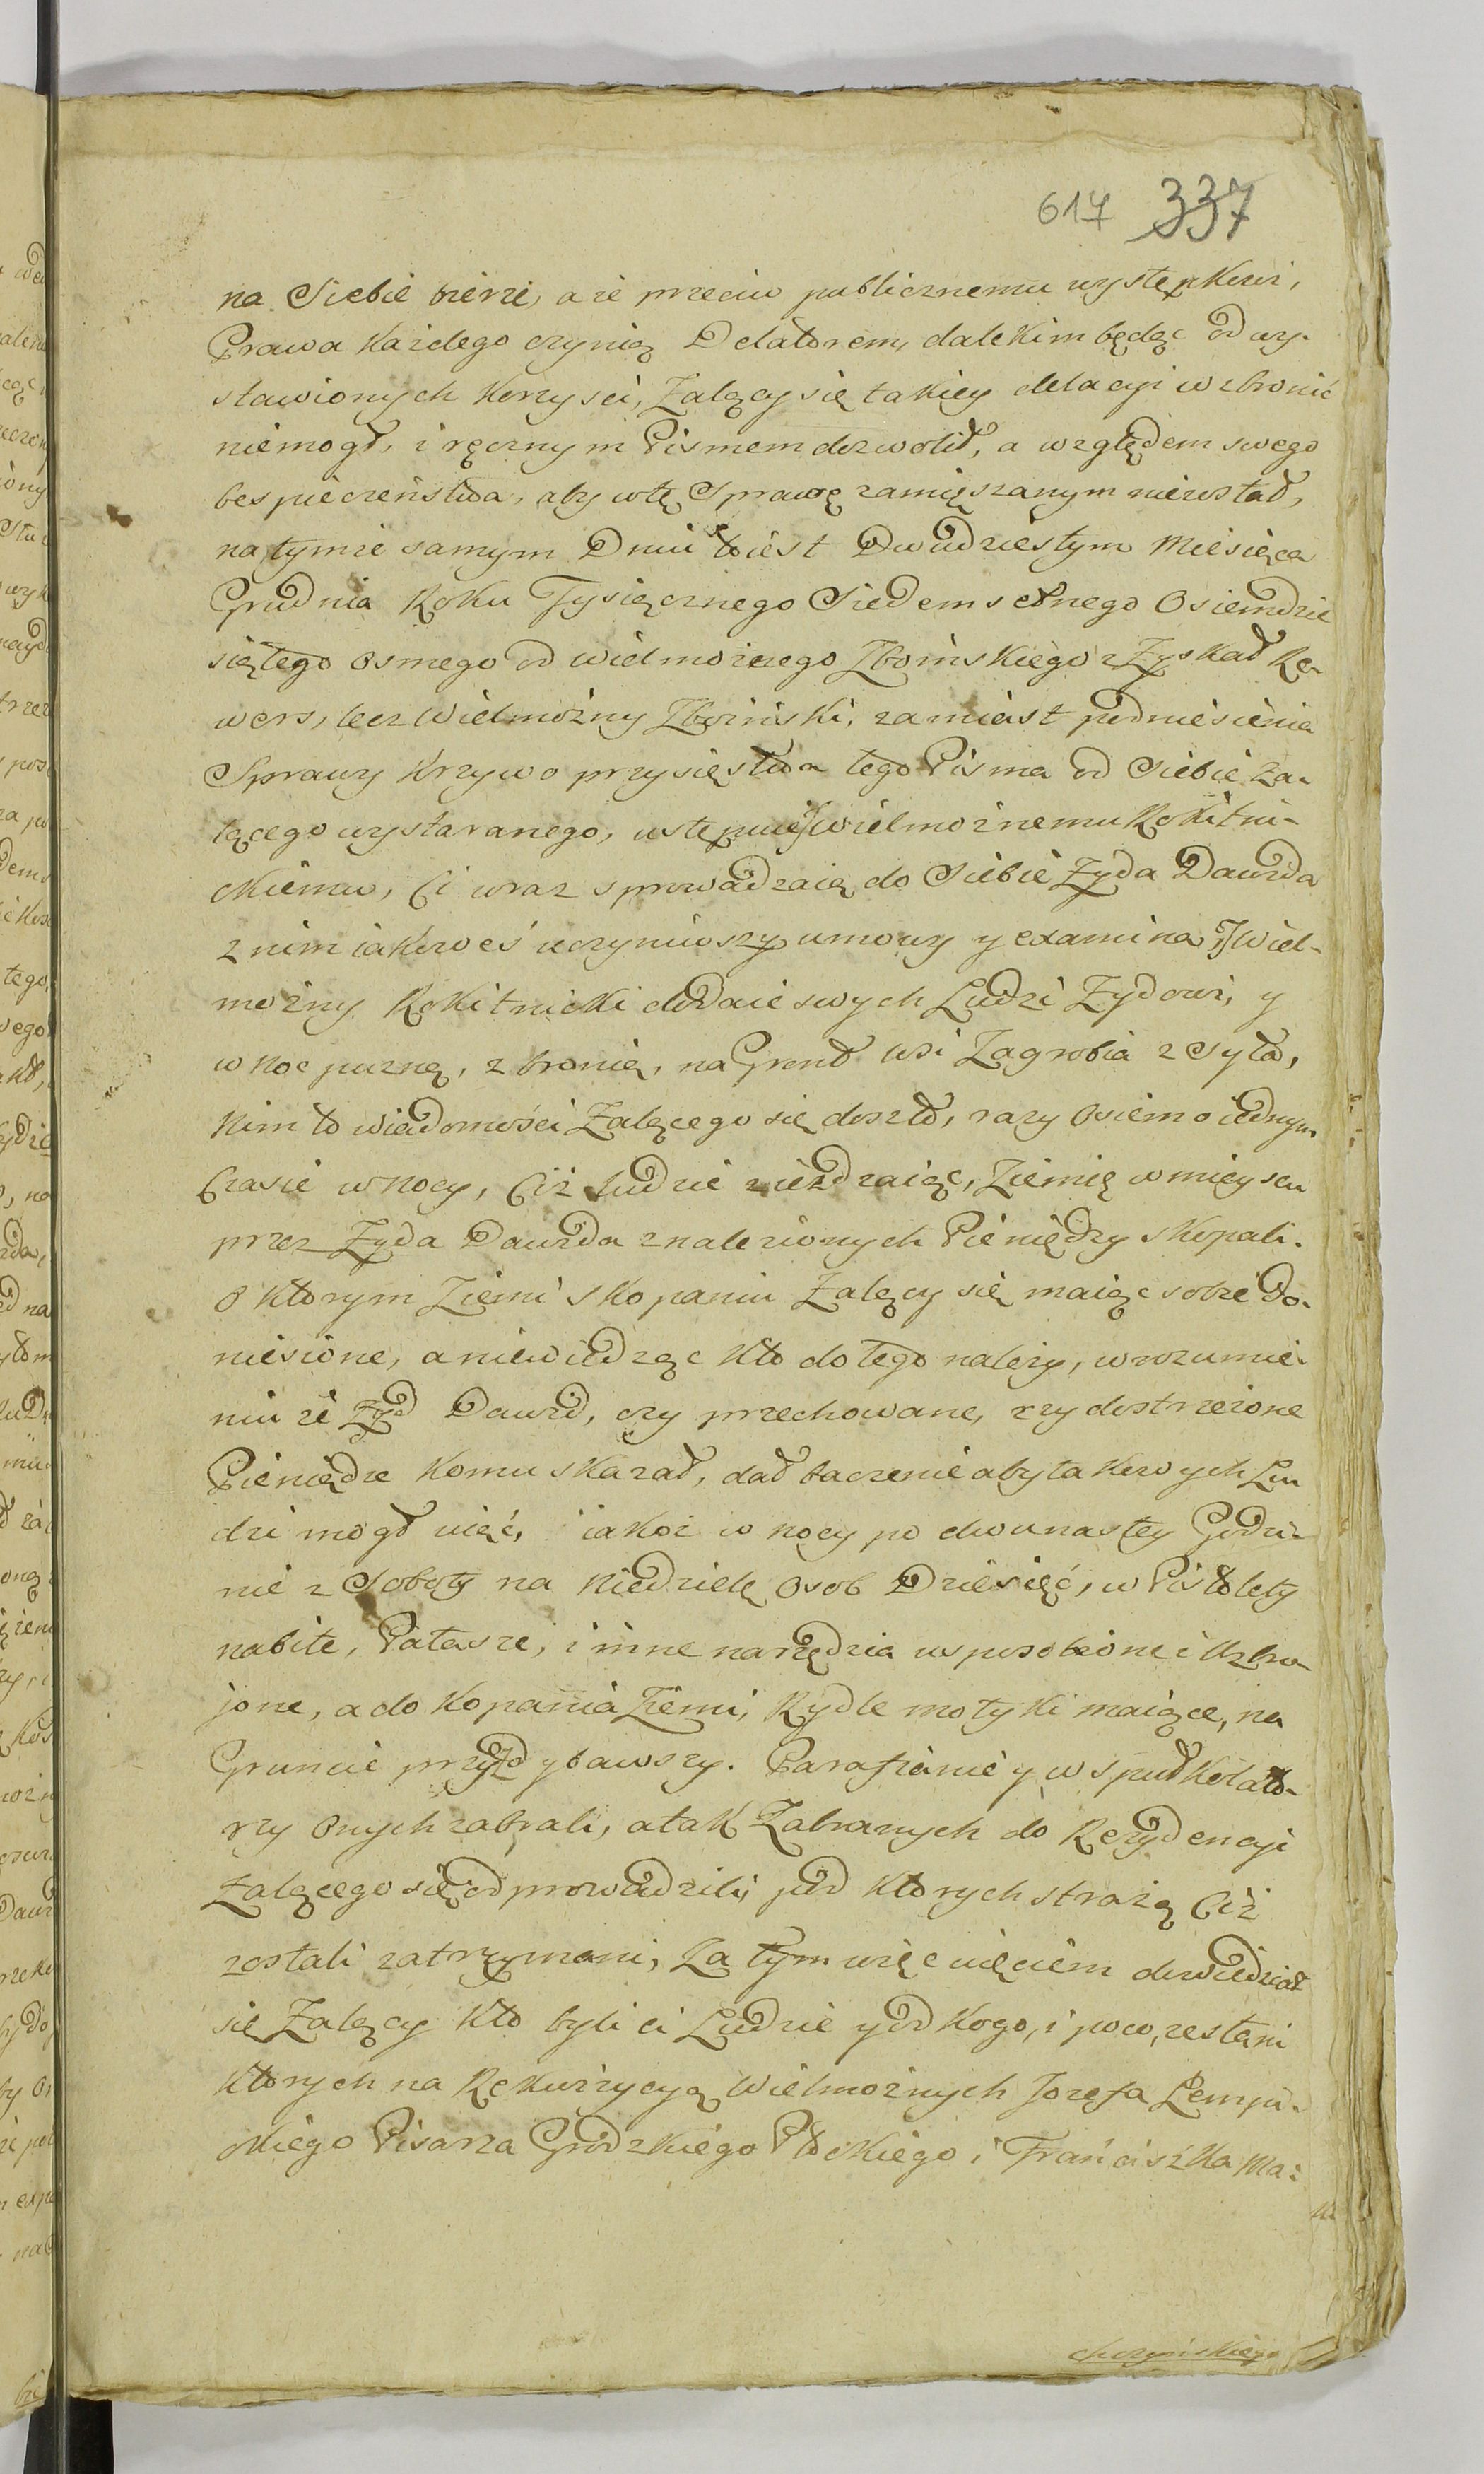 617 337
na Siebie bierze, a że przeciw publicznemu występkowi,
Prawa każdego czynią Delatorem, dalekim będąc od wy-
stawionych korzysci, Zalący się takiey delacyi wzbronić
niemogł, i ręcznym Pismem dozwolił, a względem swego
bespieczeństwa, aby wtę Sprawę zamięszanym niezostał,
natymże samym Dniu to iest Dwudziestym Miesiąca
Grudnia Roku Tysiącznego Siedemsetnego Osiemdzie
siątego osmego od Wielmożnego Zboińskiego zZyskał Re-
wers, lecz Wielmożny Zboiński, zamiast podniesienia
Sprawy krzywo przysięstwa tego Pisma od Siebie Ża-
lącego wystaranego, ustępuie Wielmożnemu Rokitni-
ckiemu, Ci wraz sprowadzaią do Siebie Zyda Dawida
z nim iakoweś uczyniwszy umowy y examina, JWiel-
możny Rokitnicki dodaie swych Ludzi Zydowi, y
w noc puzną, z bronią, na Gront wsi Zagrobia zsyła,
nim to wiadomości Zalącego się doszło, razy Osiem o iednym
Czasie w nocy, Ciż ludzie zieżdzaiąc, Ziemię w mieyscu
przez Zyda Dawida znalezionych Pieniędzy skopali.
O ktorym Ziemi skopaniu Zalący się maiąc sobie do-
niesione, a niewiedząc kto do tego należy, w rozumie-
niu że Zyd Dawid, czy przechowane, czy dostrzeżone
Pieniądze komu skazał, dał baczenie aby takowych Lu
dzi mogł uiąć, iakoż w nocy po dwunastey Godzi-
nie z Soboty na Niedzielę Osob Dziesięć, w Pistolety
nabite, Pałasze, i inne narzędzia usposobione i Uzbro
jone, a do kopania Ziemi, Rydle motyki maiące, na
Gruncie przydybawszy. Parafianie y wspułkolato-
rzy Onych zabrali, a tak Zabranych do Rezydencyi
Zalącego się odprowadzili, pod ktorych strażą Ciż
zostali zatrzymani, Za tym więc uięciem dowiedział
się Zalący kto byli ci Ludzie y od kogo, i poco, zesłani
ktorych na Rekwizycyą Wielmożnych Jozefa Lempi-
ckiego Pisarza Grodzkiego Płockiego i Franciszka Ma-
choczyńskiego